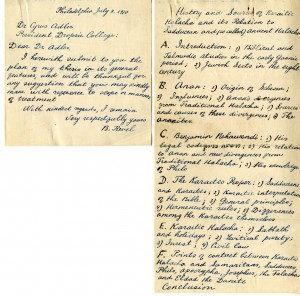 Philadelphia July 5. 1910
Dr. Cyrus Adler
President Dropsie College:
Dear Dr. Adler
I herewith submit to you the
plan of my thesis in its general
features, and will be thankful for
any suggestion that you may kindly
make with reference to scope or manner
of treatment
With kindest regards, I remain
Very respectfully yours
B. Revel
History and Sources of Karaite
Halacha and its Relation to
Sadducean and Halacha
A. Introduction: 1) Biblical and
Talmudic studies in the early Gaonic
period; 2) Jewish sects in the eighth
century
B. Anan: 1) Origin of schism;
2) Influences; 3) Anan's divergence
from Traditional Halacha; 4) Sources
and causes of these divergences; 5) The
Ananites
C. Benjamin Nahawendi: 1) His
legal code; 2) his relation
to Anan and new divergences from
Traditional Halacha; 3) His knowledge
of Philo
D. The Karaites Proper: 1) Sadducees
and Karaites; 2) Karaitic interpretation
of the Bible; 3) General principles;
4) Hermeneutic rules; 5) Differences
among the Karaites themselves
E. Karaitic Halacha: 1) Sabbath
and holidays; 2) Levitical purity;
3) Incest; 4) Civil Law
F. Points of contact between Karaitic
Halacha and Samaritans, Sadducees,
Philo, apocrypha, Josephus, the Falashas
and Eldad the Danite
Conclusion